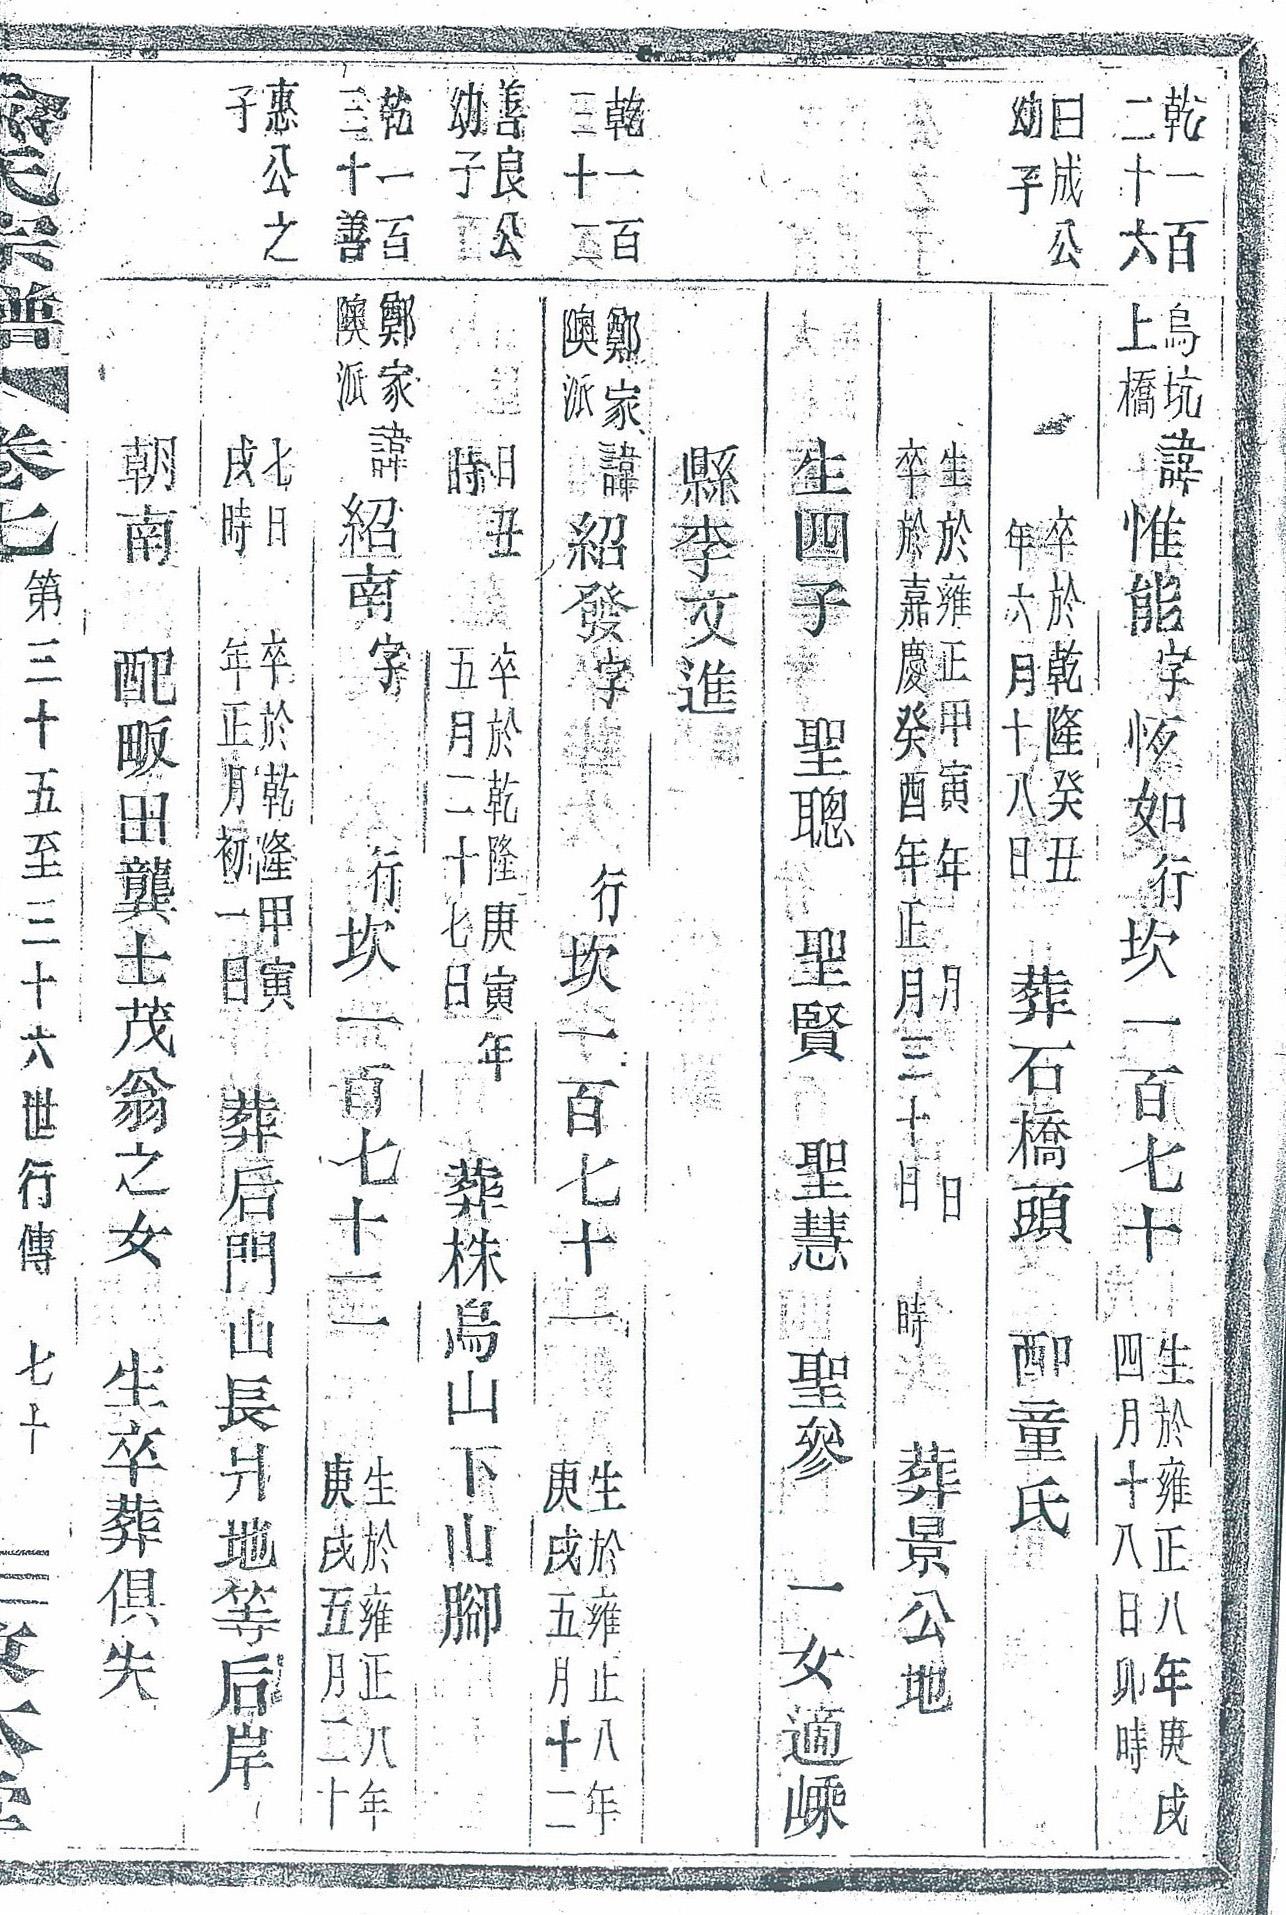 乾一百
二十六
曰成公
幼子
烏坑
上橋
諱惟能字恆如行坎一百七十
生於雍正八年庚戌
四月十八日卯時
卒於乾隆癸丑
年六月十八日
葬石橋頭 配童氏
生於雍正甲寅年 月 日
卒於嘉慶癸酉年正月三十日 時
葬景公地
生四子 聖聰 聖賢 聖慧 聖參 一女適嵊
縣李文進
乾一百
三十二
善良公
幼子
鄭家
隩派
諱紹發字 行坎一百七十一
生於雍正八年
庚戌五月十二
日丑
時
卒於乾隆庚寅年
五月二十七日
葬株烏山下山腳
乾一百
三十善
惠公之
子
鄭家
隩派
諱紹南字 行坎一百七十二
生於雍正八年
庚戌五月二十
七日
戌時
卒於乾隆甲寅
年正月初一日
葬后門山長爿地等后岸
朝南 配畈田龔士茂翁之女 生卒葬俱失
氏宗譜 卷七 第三十五至三十六世行傳 七十